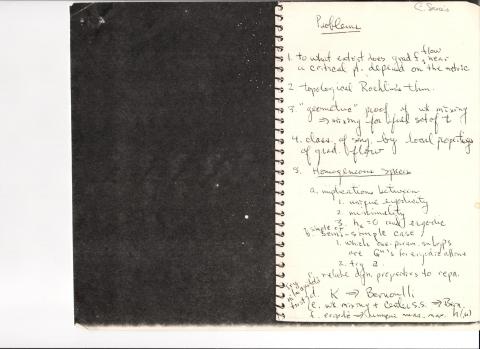 C. Series
Problems
1. to what extent does grad f flow near
a critical pt. depend on the metric
2. topological Rochlin's thm.
3. "geometric" proof of wk mixing
⇒ mixing for a full set of t
4. class. of sing. by local properties
of grad. flow
5. Homogeneous spaces
a. implications between
1. unique ergodicity
2. minimality
3. = 0 and ergodic
b. semi-simple case
1. which one-param. subgps
are for ergodic affine
2. try a.
c. relate dyn. properties to repn.
d. K ⇒ Bernoulli
e. wk mixing + ⇒ Bern.
f. ergodic ⇒ unique meas. max.